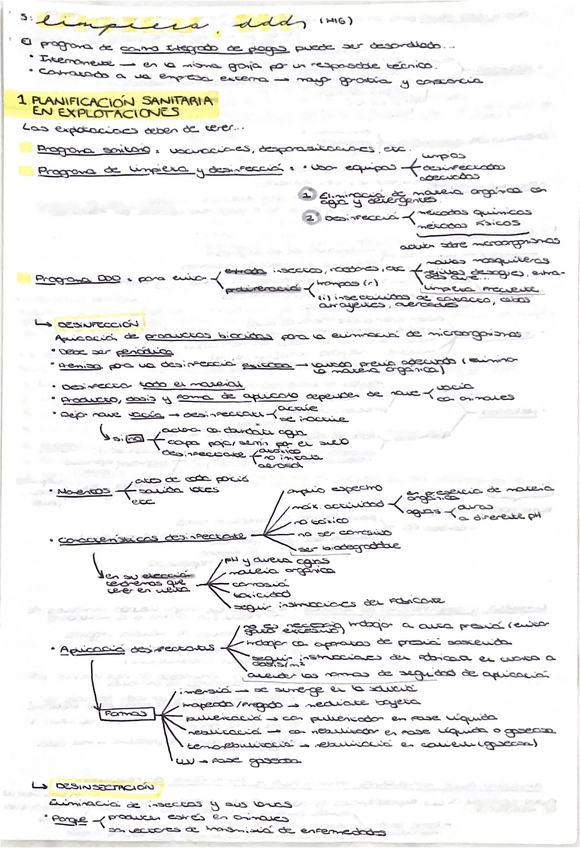 5: limpieza, ddd, (HIG)
El programa de control integrado de plagas puede ser desarrollado...
• Internamente → en la misma granja por un responsable técnico.
• Contratado a una empresa externa → mayor garantía y constancia
1 PLANIFICACIÓN SANITARIA
EN EXPLOTACIONES
Las explotaciones deben de tener...
Programa sanitario: vacunaciones, desparasitaciones, etc.
Programa de limpieza y desinfección: • usar equipos
limpios
desinfectados
adecuados
1 Eliminación de materia orgánica con
agua y detergentes
2 Desinfección
métodos químicos
métodos físicos
actúan sobre microorganismos
Programa DDD: para evitar
entrada insectos, roedores, etc
mallas mosquiteras
rejillas desagües,
limpieza frecuente
proliferación
trampas (r)
(i) insecticidas de contacto, cebos
atrayentes, aerosoles
↳ DESINFECCIÓN
Aplicación de productos biocidas para la eliminación de microorganismos
• Debe ser periódica
• Premisa para una desinfección exitosa → lavado previo adecuado (elimina
la materia orgánica)
• Desinfectar todo el material
• Producto, dosis y forma de aplicarlo dependen de nave
vacía
con animales
• Dejar nave vacía → desinfectante
actúe
se inactive
si no
actúa con abundante agua
capa paja/serrín por el suelo
desinfectante
no tóxico
no irritante
aerosol
• Momentos
antes de cada parto
salida lotes
etc
• Características desinfectante
amplio espectro
máx. actividad
en presencia de materia
orgánica
aguas
duras
a diferente pH
no tóxico
no ser corrosivo
ser biodegradable
en su elección
tendremos que
tener en cuenta
pH y dureza aguas
materia orgánica
corrosión
toxicidad
seguir instrucciones del fabricante
• Aplicación desinfectantes
si es necesario trabajar a alta presión (evitar
gasto excesivo)
trabajar con aparatos de presión sostenida
seguir instrucciones del fabricante en cuanto a
dosis/m²
atender las normas de seguridad de aplicación
Formas
inmersión → se sumerge en la solución
mopeado/fregado → mediante bayeta
pulverización → con pulverizador en fase líquida
nebulización → con nebulizador en fase líquida o gaseosa
termonebulización → nebulización en caliente (gaseosa)
UV → fase gaseosa
↳ DESINSECTACIÓN
Eliminación de insectos y sus larvas
• Porque
producen estrés en animales
son vectores de transmisión de enfermedades